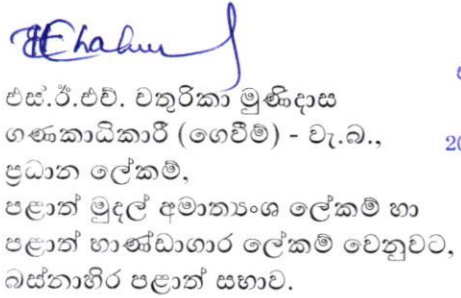 එස්.ඊ.එච්. චතුරිකා මුණිදාස
ගණකාධිකාරී (ගෙවීම්) - වැ.බ.,
ප්‍රධාන ලේකම්,
පළාත් මුදල් අමාත්‍යංශ ලේකම් හා
පළාත් භාණ්ඩාගාර ලේකම් වෙනුවට,
බස්නාහිර පළාත් සභාව.
20